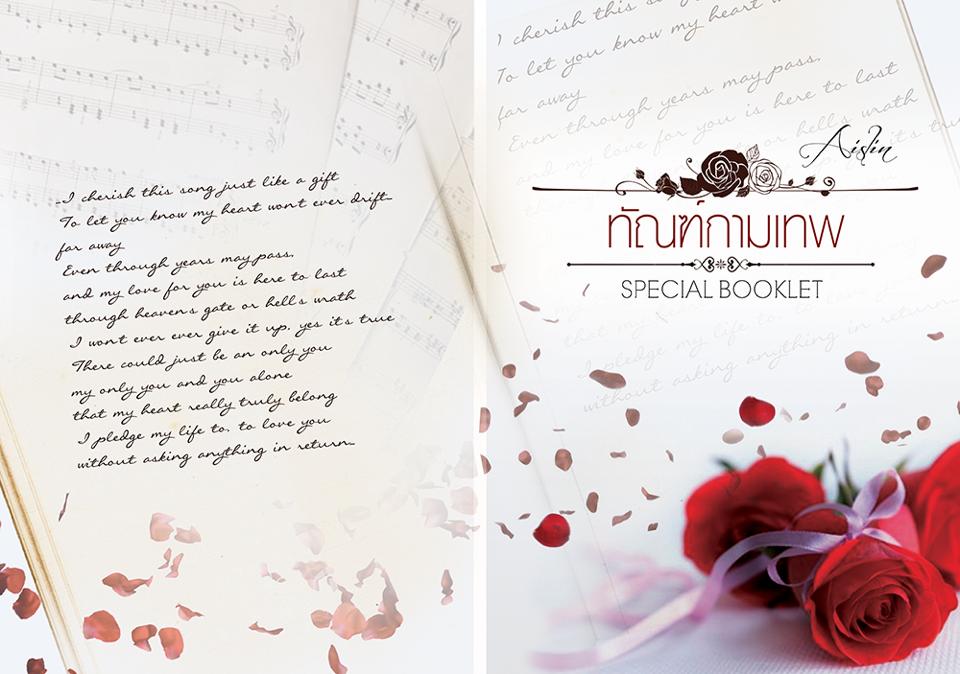 I cherish this song just like a gift
To let you know my heart won't ever drift
far away
Even through years may pass,
and my love for you is here to last
through heaven's gate or hell's wrath
I won't ever ever give it up, yes it's true
There could just be an only you
my only you and you alone
that my heart really truly belong
I pledge my life to, to love you
without asking anything in return...
I cherish this
To let you know my heart
far away
Even through years may pass,
and my love for you is here to last
or hell's wrath
it's tru
Aislin
ทัณฑ์กามเทพ
SPECIAL BOOKLET
that
I pledge my life to,
without asking anything in return